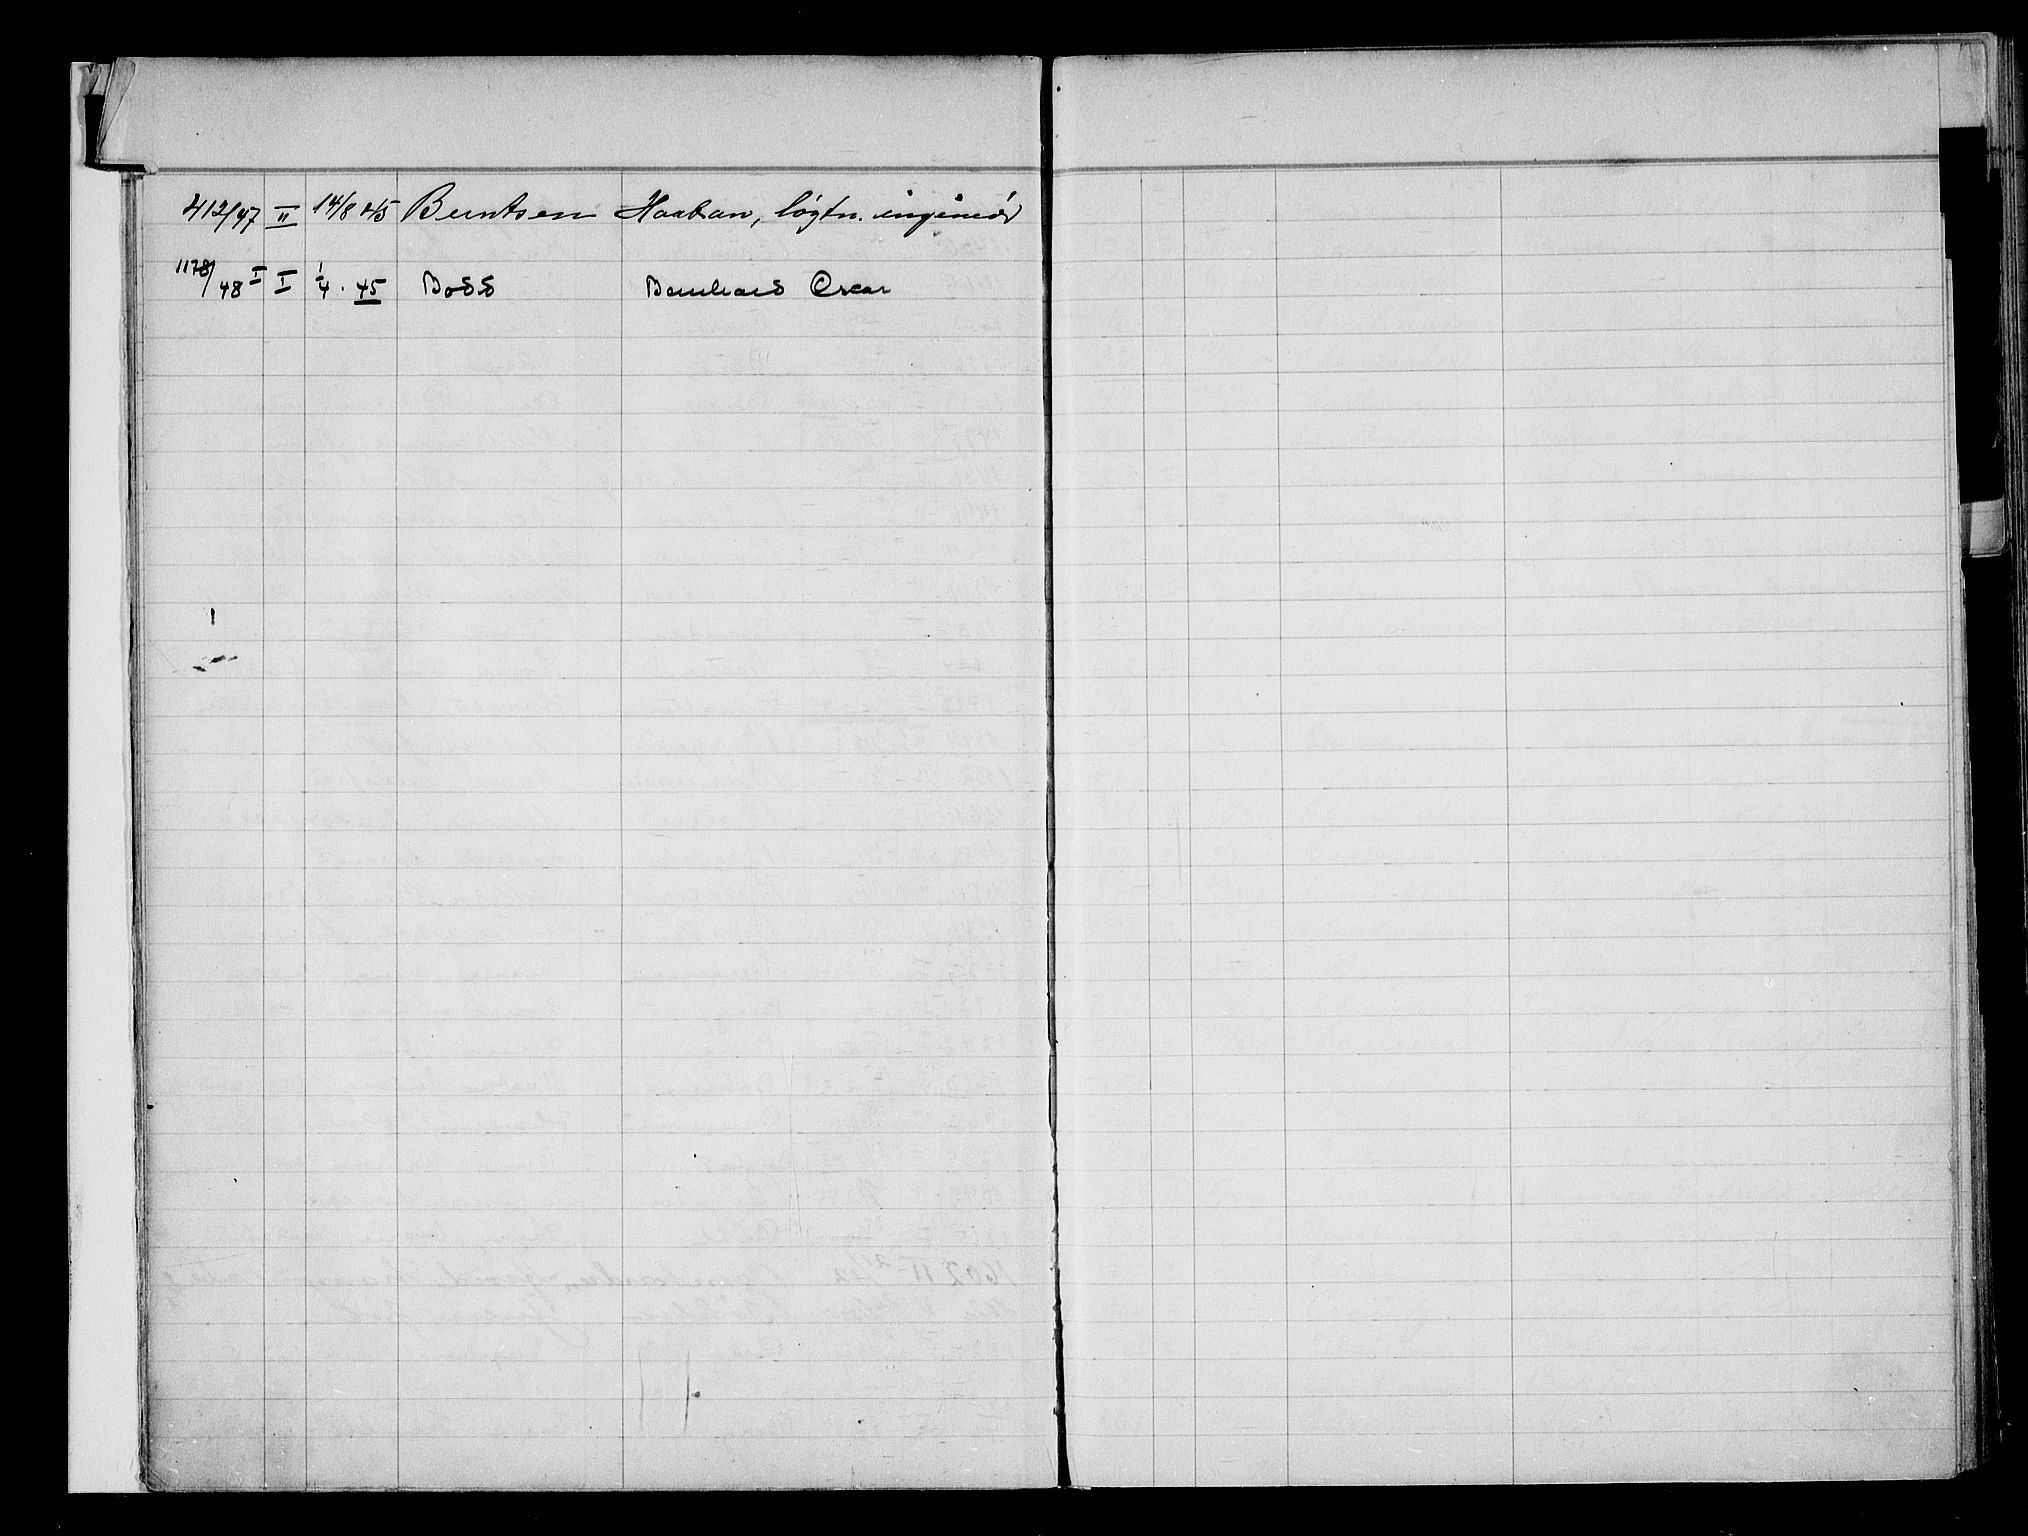 412/47 II 14/8 45 Berntsen Haakon, løytn. ingeniør
1178/48 I I 1/4.45 Boss Bernhard Oscar